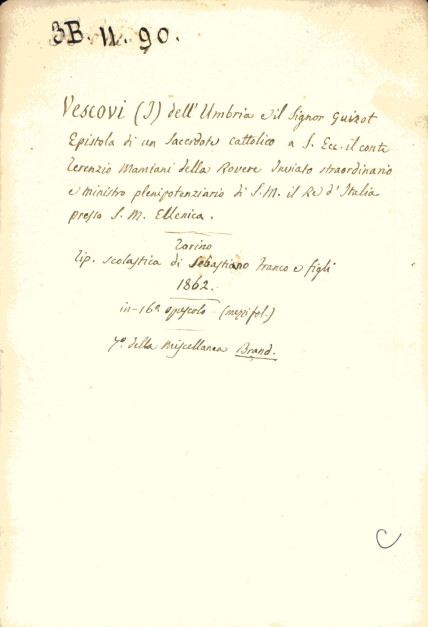 3B. 11. 90.
Vescovi (I) dell'Umbria e il Signor Guizot
Epistola di un Sacerdote cattolico a S. Ecc. il conte
Terenzio Mamiani della Rovere Inviato straordinario
e ministro plenipotenziario di S.M. il Re d'Italia
presso S. M. Ellenica.
Torino
Tip. scolastica di Sebastiano Franco e figli
1862.
in-16º opuscolo (mezzi fol.)
7º della Miscellanea Brand.
C